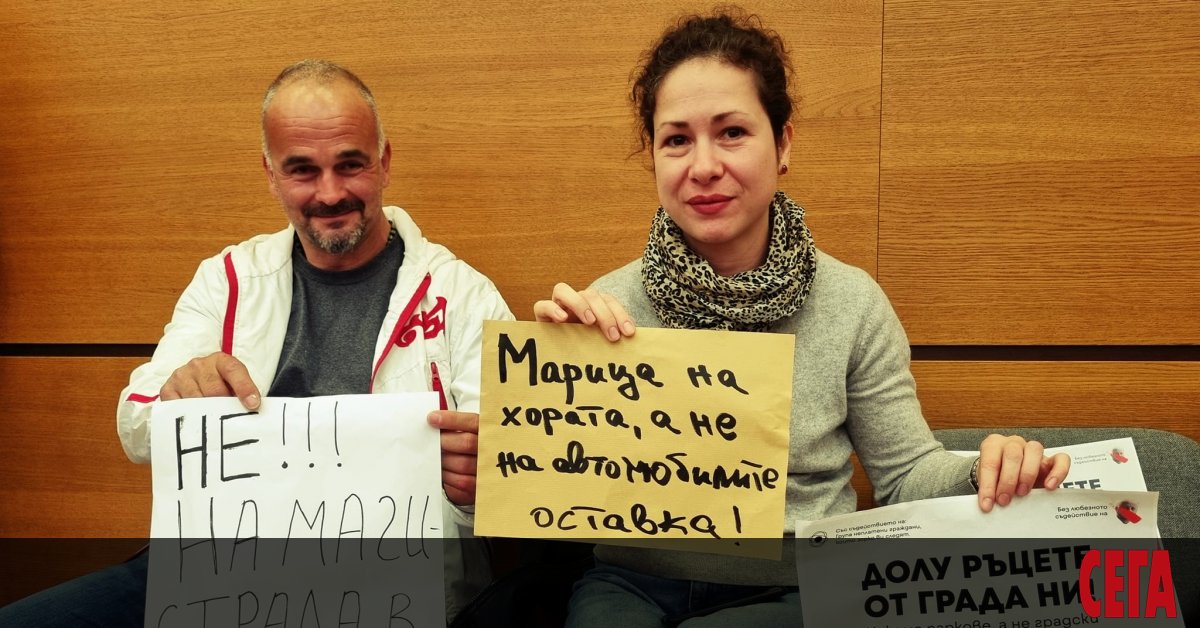 НЕ!!!
НА МАГИ-
СТРАЛА В
Марица на
хората, а не
на автомобилите
оставка!
Без любезното
съдействие на
Със съдействието на:
Група неплатени граждани,
Без любезното
съдействие на
ДОЛУ РЪЦЕТЕ
ОТ ГРАДА НИ!
паркове, а не градски
СЕГА